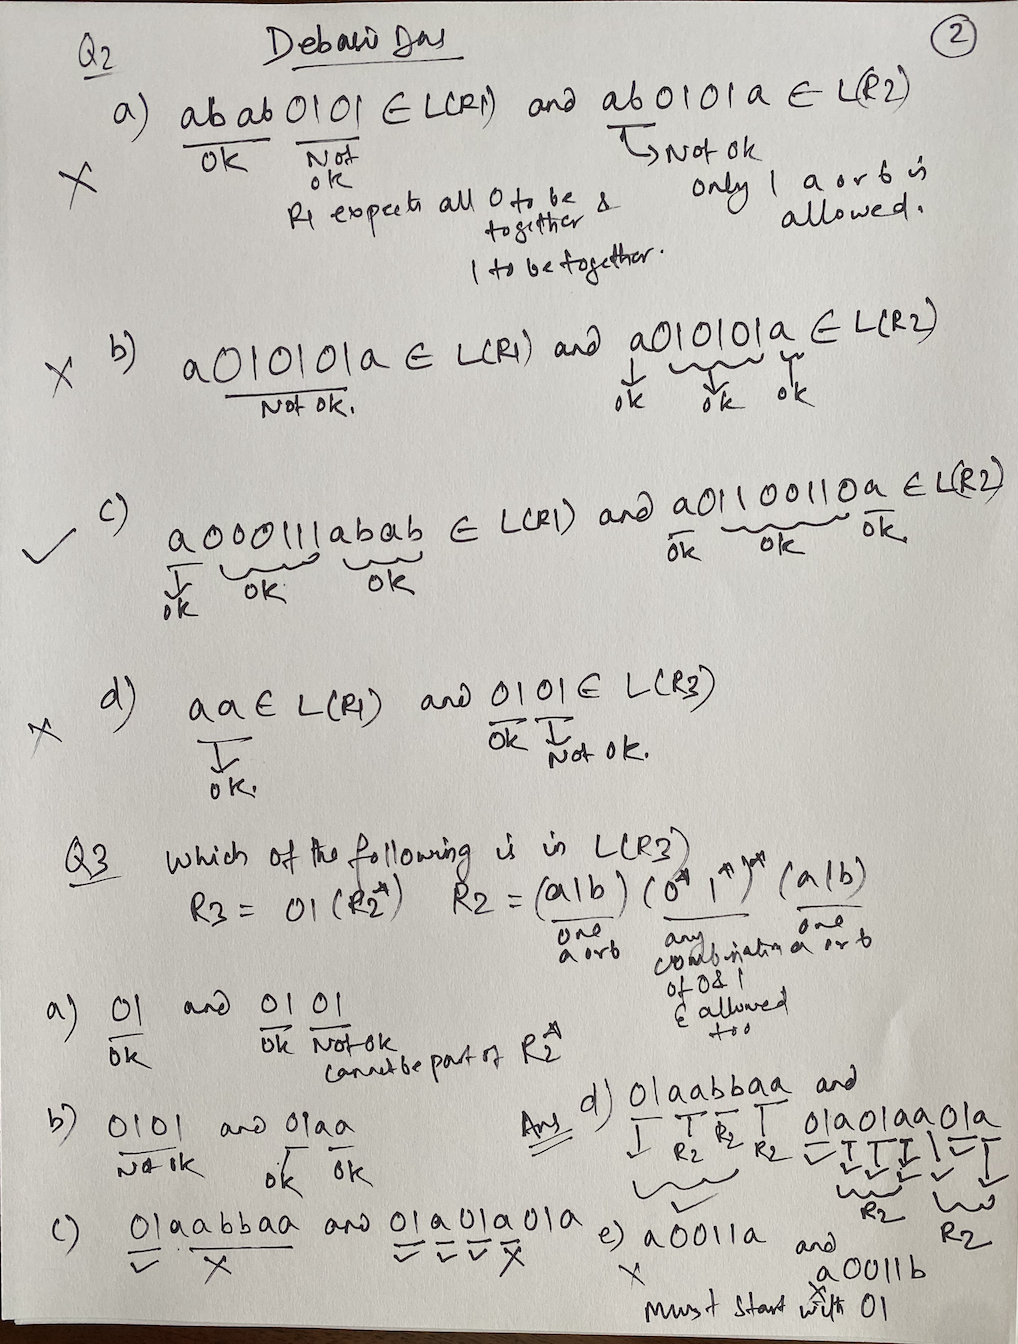 Q2 Debasis Das 2
a) abab0101 ∈ L(R1) and ab0101a ∈ L(R2)
ok Not ok Not ok
R1 expects all 0 to be together & 1 to be together.
only 1 a or b is allowed.
X
b) a010101a ∈ L(R1) and a010101a ∈ L(R2)
X Not ok. ok ok ok
c) a000111abab ∈ L(R1) and a01100110a ∈ L(R2)
✓ ok ok ok ok ok ok
d) aa ∈ L(R1) and 0101 ∈ L(R3)
X ok. ok Not ok.
Q3 Which of the following is in L(R3)
R3 = 01(R2*) R2 = (a|b) (0* 1*)* (a|b)
one a or b
any combination of 0 & 1 ε allowed too
one a or b
a) 01 and 01 01
ok ok Not ok
cannot be part of R2*
b) 0101 and 01aa
Not ok ok ok
c) 01aabbaa and 01a01a01a
✓ X ✓ ✓ ✓ X
Ans d) 01aabbaa and
R2 R2 R2
✓
01a01aa01a
R2 R2
e) a0011a and
a0011b
X X
must start with 01